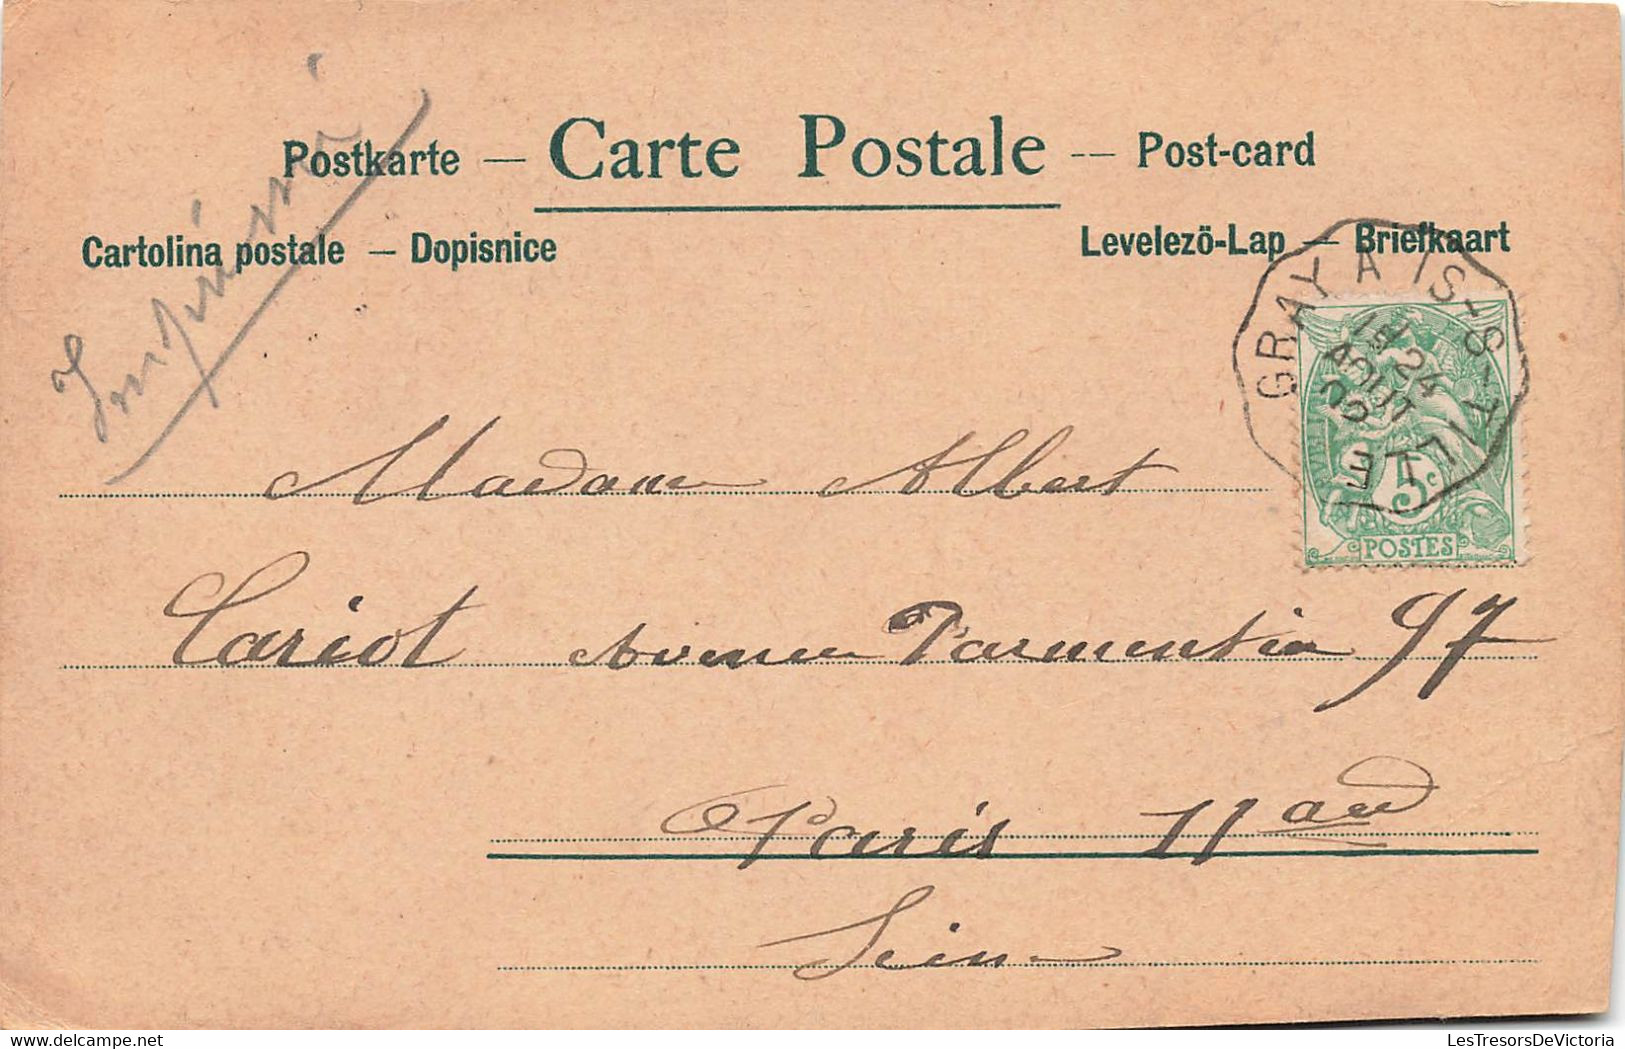 Imprimé
Postkarte — Carte Postale -- Post-card
Cartolina postale — Dopisnice
Levelezö-Lap — Briefkaart
GRAY A IS-S-TILLE
24
AOUT
02
5c
POSTES
Madame Albert
Cariot Avenue Parmentier 97
Paris 11
Seine
LesTresorsDeVictoria